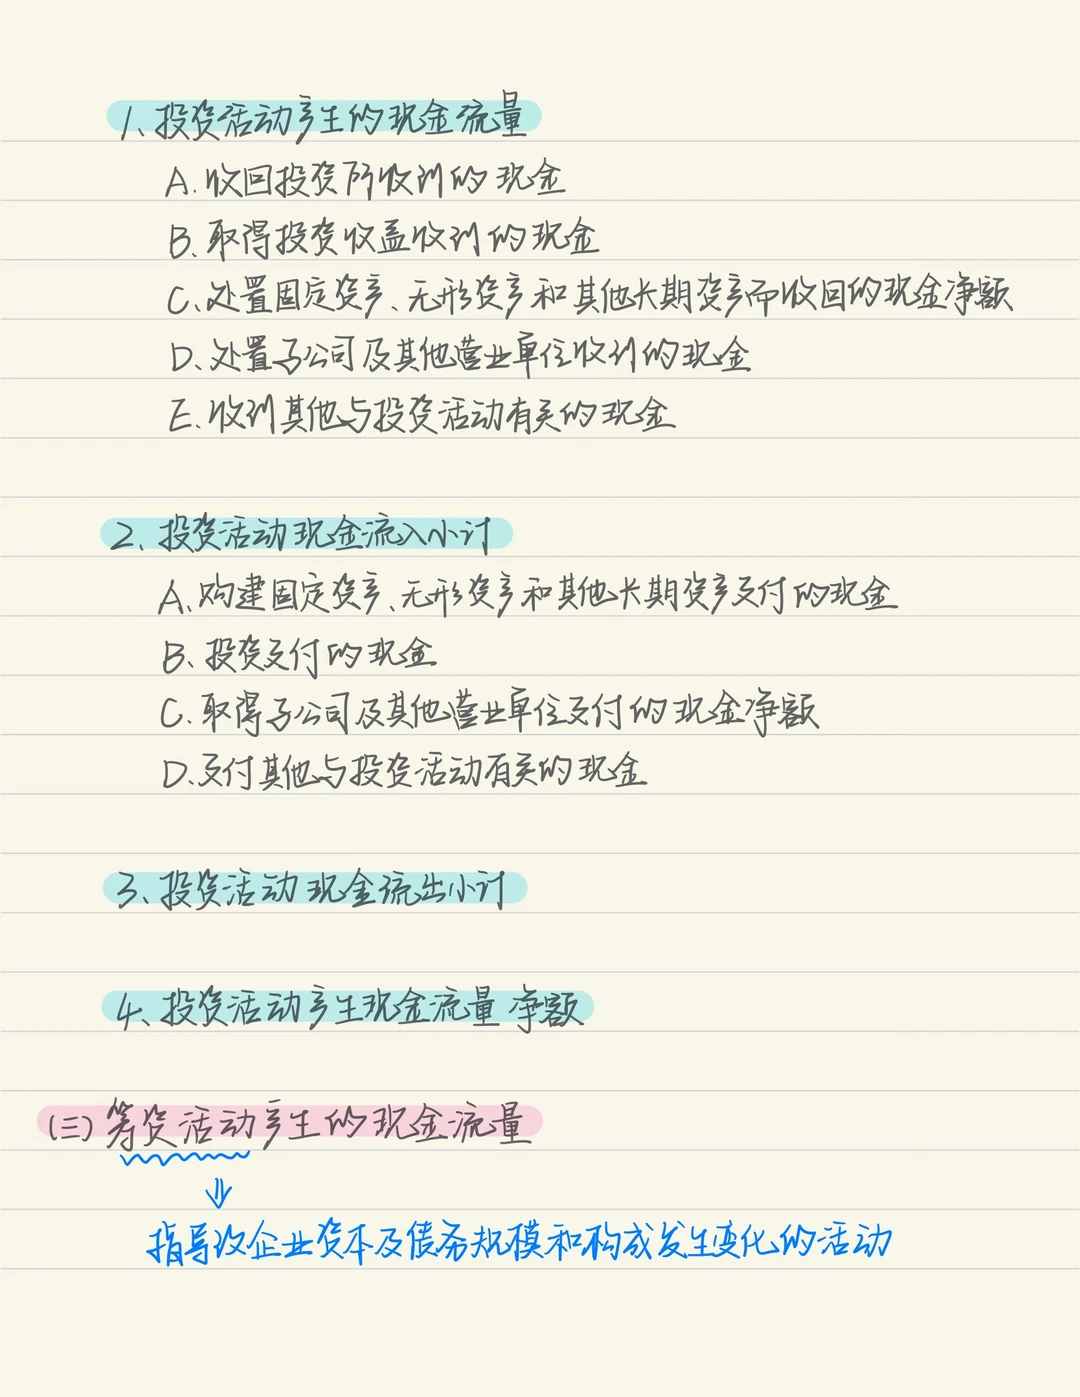 1、投资活动产生的现金流量
A.收回投资所收到的现金
B.取得投资收益收到的现金
C.处置固定资产、无形资产和其他长期资产而收回的现金净额
D.处置子公司及其他营业单位收到的现金
E.收到其他与投资活动有关的现金
2、投资活动现金流入小计
A.购建固定资产、无形资产和其他长期资产支付的现金
B.投资支付的现金
C.取得子公司及其他营业单位支付的现金净额
D.支付其他与投资活动有关的现金
3、投资活动现金流出小计
4、投资活动产生现金流量净额
(三)筹资活动产生的现金流量
⇓
指导致企业资本及债务规模和构成发生变化的活动